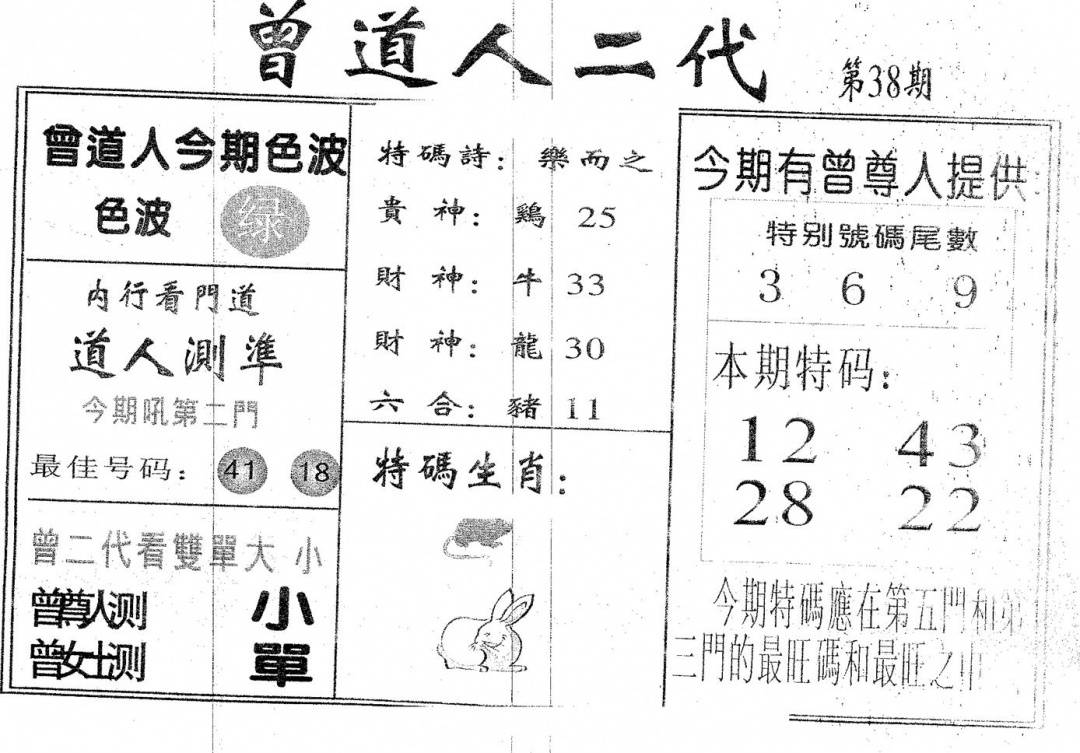 曾道人二代
第38期
曾道人今期色波
色波 绿
内行看門道
道人測準
今期吼第二門
最佳号码： 41 18
曾二代看雙單大 小
曾尊人测 小
曾女士测 單
特碼詩： 樂而之
貴 神： 鷄 25
財 神： 牛 33
財 神： 龍 30
六 合： 豬 11
特碼生肖：
今期有曾尊人提供：
特别號碼尾數
3 6 9
本期特码：
12 43
28 22
今期特碼應在第五門和第
三門的最旺碼和最旺之中